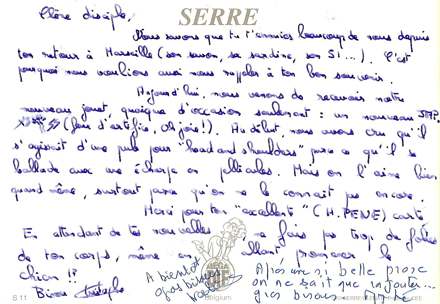 SERRE
Chère disciple,
Nous savons que tu t'ennuies beaucoup de nous depuis
ton retour à Marseille (son savon, sa sardine, son Si...). C'est
pourquoi nous voulions aussi nous rappeler à ton bon souvenir.
Aujourd'hui, nous venons de recevoir notre
nouveau jouet, quoique d'occasion seulement : un nouveau
(feu d'artifice, oh joie!). Au début, nous avons cru qu'il
s'agissait d'une pub pour "head and shoulders" parce qu'il se
ballade avec une écharpe en pellicules. Mais on l'aime bien
quand même, surtout parce qu'on ne le connait pas encore.
Merci pour ton "excellente" (H. PENE) carte
En attendant de tes nouvelles ne fais pas trop de folies
de ton corps, même en allant promener le
chien !!
Bises
A bientôt
gros bisous
Après une si belle prose
on ne sait que rajouter...
gros bisous
S 11
Belgium